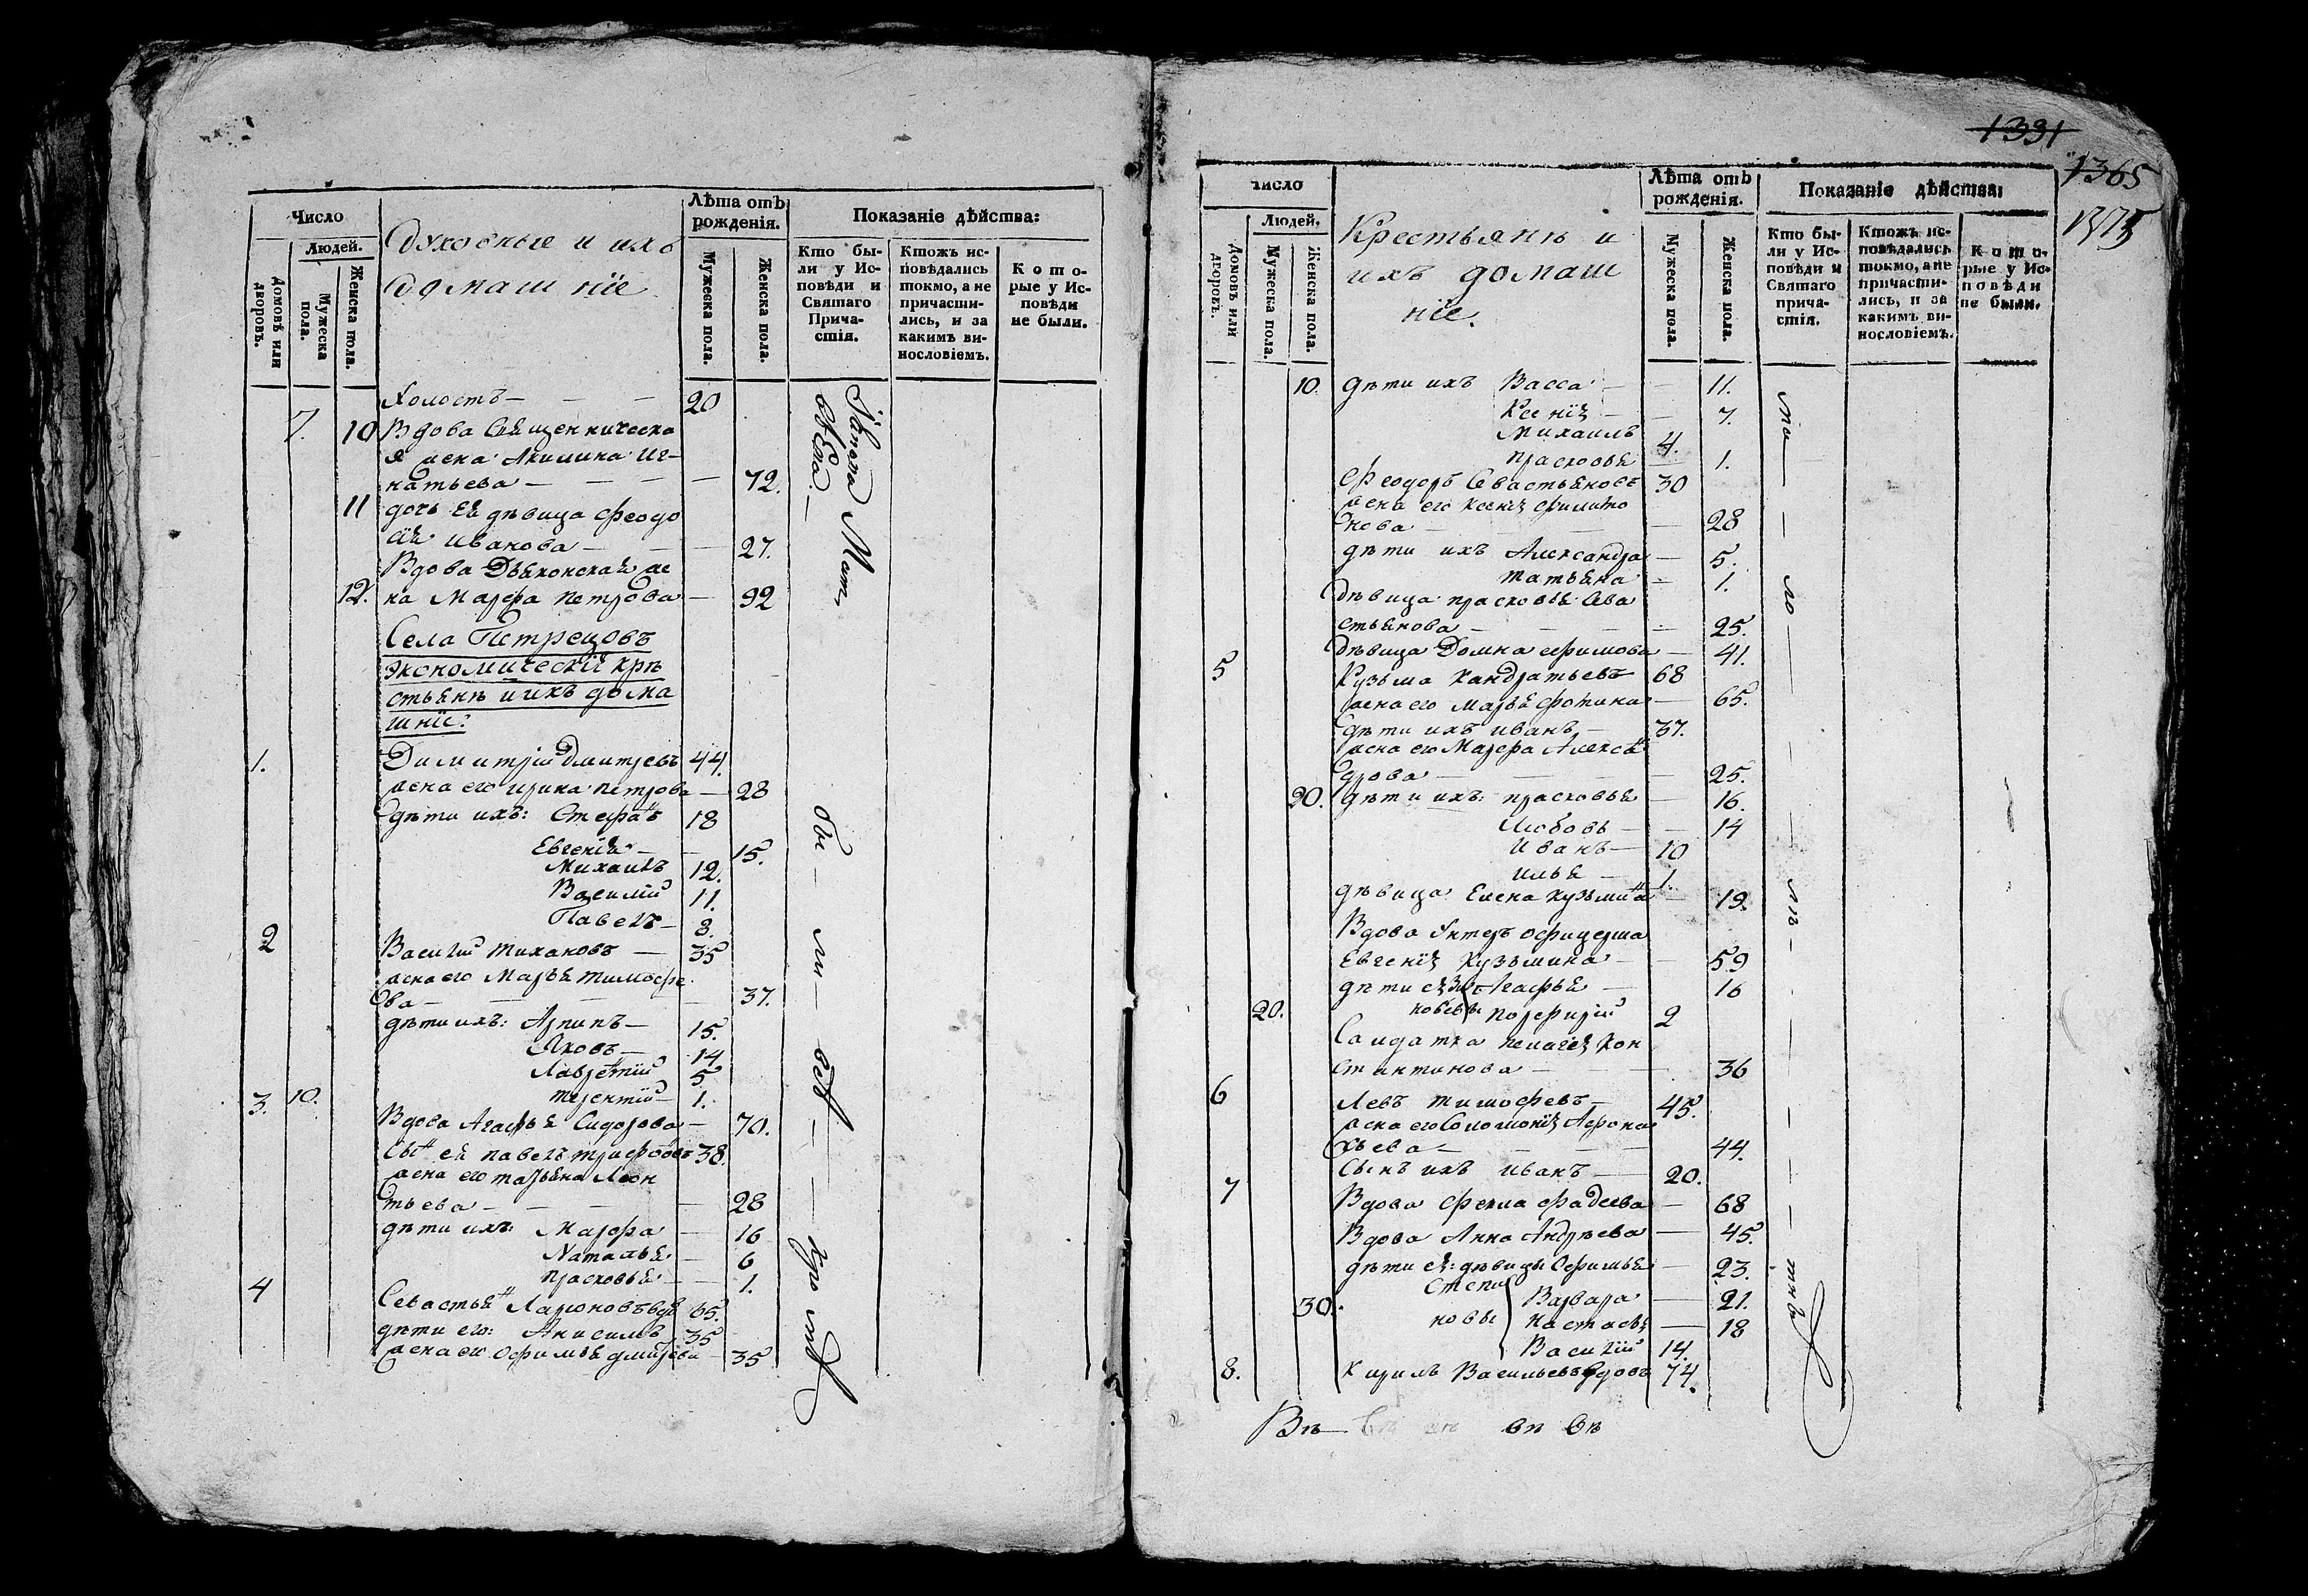 Число
Людей.
Домовъ или дворовъ.
Мужеска пола.
Женска пола.
Духовные и ихъ
домашнïе
Лѣта отъ
рожденïя.
Мужеска пола.
Женска пола.
Показанïе дѣйства:
Кто бы-
ли у Ис-
повѣди и
Святаго
Прича-
стïя.
Ктожъ ис-
повѣдались
токмо, а не
причасти-
лись, и за
какимъ ви-
нословïемъ.
Кото-
рые у Ис-
повѣди
не были.
Холостъ — — — 20
7. 10 Вдова Священническа
я жена Акилина Иг-
натьева — — — — 72.
11 дочь Ея дѣвица Феодо
сiя Иванова — — — 27.
Вдова Дьяконская же
12. на Марфа Петрова — 92
Села Петрецовъ
экономическiй кре
стьянѣ и ихъ дома
шнiе:
1. Димитрiй Дмитревъ 44.
жена его Ирина Петрова — 28
дѣти ихъ: Стефанъ 18
Евгенiя — — 15.
Михаилъ 12.
Василiй 11.
Павелъ — 3.
2 Василiй Тихановъ — 35
жена его Марья Тимофе
ева — — — — 37.
дѣти ихъ: Архипъ — 15.
Яковъ — 14
Лаврентiй 5
3. 10. Терентiй — 1.
Вдова Агафья Сидорова — 70.
Сынъ ея Павелъ Трифоновъ 38.
жена его Татьяна Леон
тьева — — — — 28
дѣти ихъ: Марфа — 16
Наталья — 6
4 Прасковья — — 1.
Севастьянъ Ларионовъ вдв 65.
дѣти его: Анисимъ 35
жена его Офимья Дмитрева — 35
обы — ли — всѣ — —
1391
1365
Число
Людей.
Домовъ или дворовъ.
Мужеска пола.
Женска пола.
Крестьянѣ и
ихъ домаш
нiе.
Лѣта отъ
рожденïя.
Мужеска пола.
Женска пола.
Показанïе дѣйства:
Кто бы-
ли у Ис-
повѣди и
Святаго
прича-
стïя.
Ктожъ ис-
повѣдались
токмо, а не
причасти-
лись, и за
какимъ ви-
нословïемъ.
Кото-
рые у Ис-
повѣди
не были.
10. дѣти ихъ Васса — — 11.
Ксенiя — — 7.
Михаилъ 4.
Прасковья — 1.
Феодоръ Севастьяновъ 30
жена его Ксенiя Филипо
нова — — 28
дѣти ихъ Александра — 5.
Татьяна — 1.
дѣвица Прасковья Сева
стьянова — — — — 25.
дѣвица Домна Ефимова — 41.
5 Кузьма Кандратьевъ 68
жена его Марья Фотина — 65.
дѣти ихъ Иванъ — 37.
жена его Марфа Алекса
дрова — — — 25.
20. дѣти ихъ: Прасковья — 16.
Любовь — — 14
Иванъ — 10
Илья — 1.
дѣвица Елена Кузьмина — 19.
Вдова Унтеръ офицерша
Евгенiя Кузьмина — — 59
дѣти ея Агафья — 16
20. Порфирiй 2
Салдатка Пелагея Кон
стантинова — — — 36
6 Левъ Тимофеевъ — 45.
жена его Соломонiя
— — — 44.
Сынъ ихъ Иванъ — 20.
7 Вдова Фекла Фадеева — 68
Вдова Анна Андрѣева — 45.
дѣти ея: дѣвицы Ефимья — 23.
Степа
30. Варвара — 21.
новы Настасья — 18
Василiй 14.
8. Кирилъ Васильевъ вдовъ 74.
Въ — въ въ